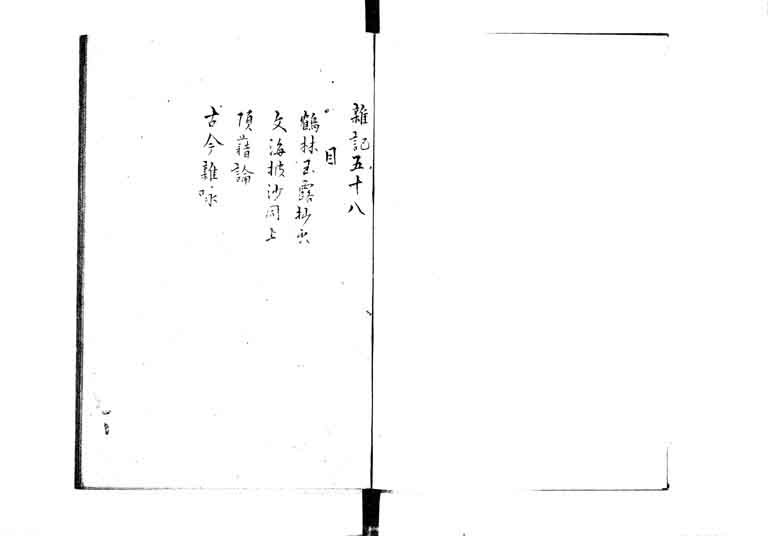 雜記五十八
目
鶴林玉露抄出
文海披沙同上
項籍論
古今雜咏